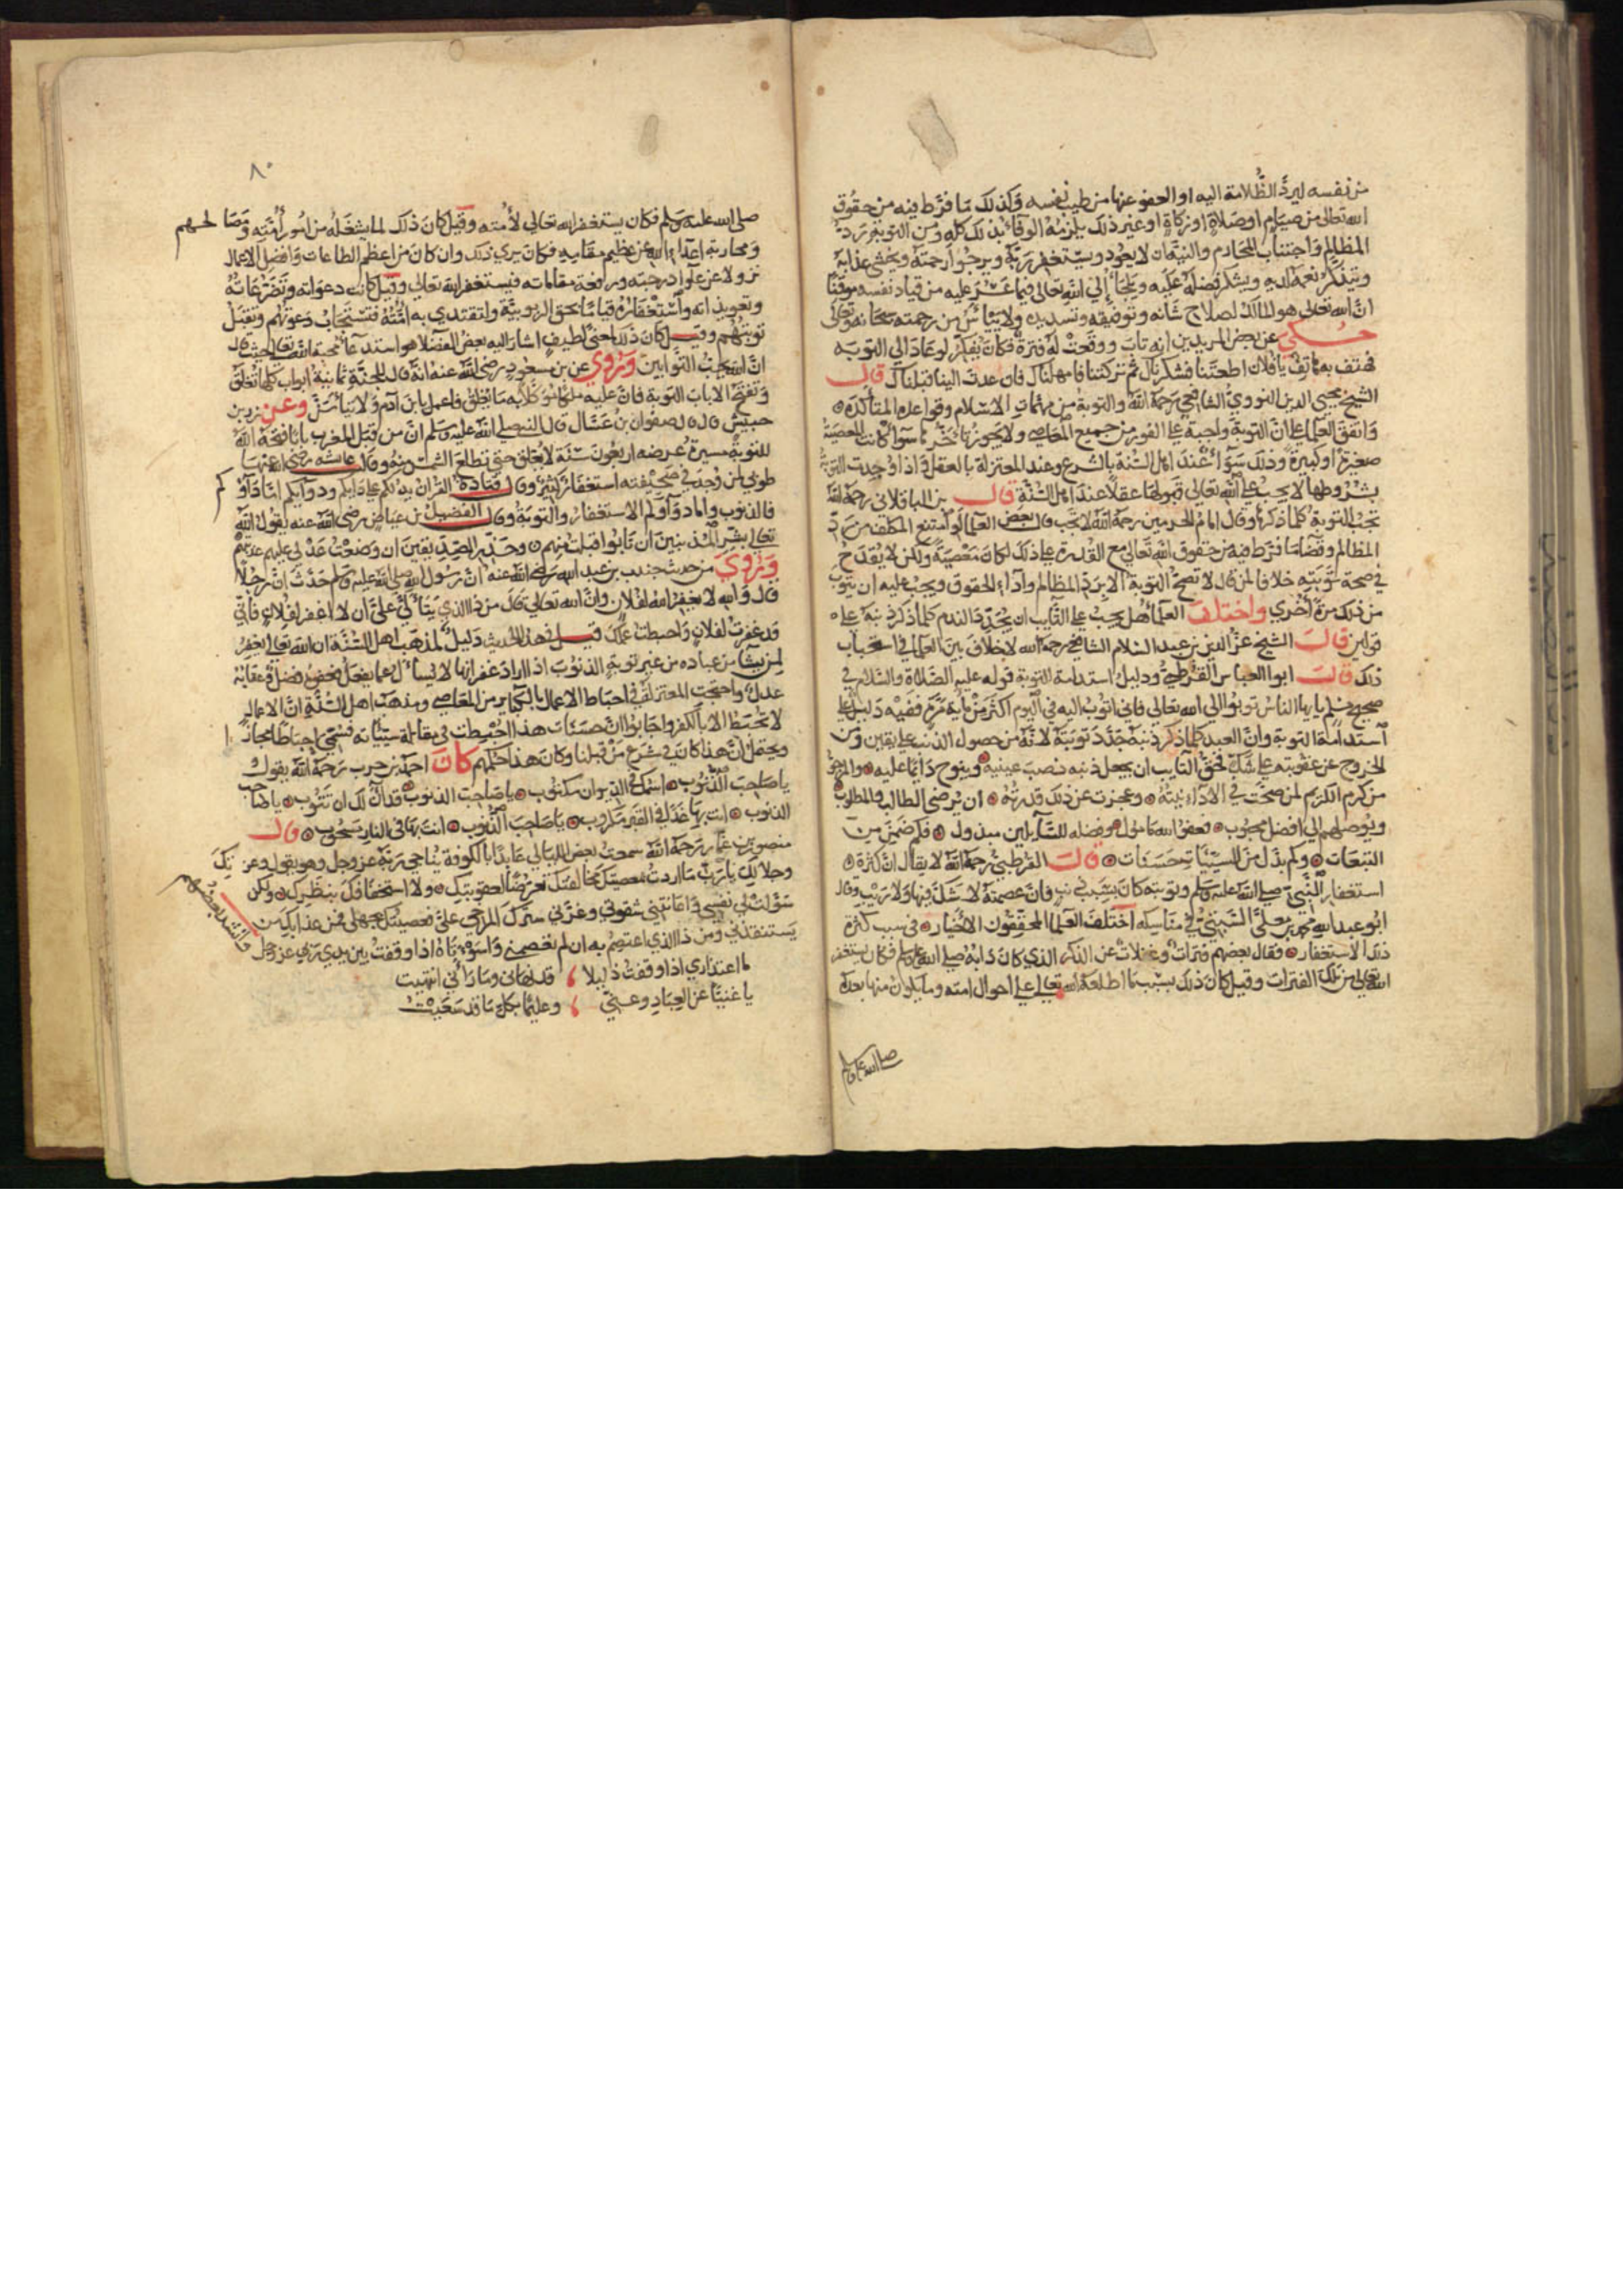 من نفسه ليرد الظلامة اليه او العفو عنها من طيب نفسه وكذلك ما فرط فيه من حقوق
الله تعالى من صيام او صلاة او زكاة او غير ذلك يلزمه الوفاء بذلك كله ومن التوبة رد
المظالم واجتناب المحارم والنية ان لا يعود ويستغفر ربه ويرجوا رحمته ويخشى عذابه
ويتذكر نعمه لديه ويشكر فضله عليه ويلجأ الي الله تعالى فيما عسر عليه من قياد نفسه موقنا
ان الله تعالى هو المالك لصلاح شانه وتوفيقه وتسديده ولا ييأس من رحمته سبحانه وتعالى
حكي عن بعض المريدين انه تاب ووقعت له فترة فكان يفكر لو عاد الي التوبه
فهتف به هاتف يا فلان اطعتنا فشكرناك ثم تركتنا فامهلناك فان عدت الينا قبلناك قال
الشيخ محيي الدين النووي الشافعي رحمه الله والتوبة من مهمات الاسلام وقواعده المتأكدة
واتفق العلما على ان التوبة واجبة على الفور من جميع المعاصي ولا يجوز تاخيرها سوآ كانت المعصية
صغيرة او كبيرة وذلك سوآء عند اهل السنة بالشرع وعند المعتزلة بالعقل فاذا وجدت التوبة
بشروطها لا يجب على الله تعالي قبولها عقلا عند اهل السنة قال بن الباقلاني رحمه الله
تجب التوبة كلما ذكرها وقال امام الحرمين رحمه الله لا تجب وقال بعض العلما لو امتنع المكلف من رد
المظالم وقضا ما فرط فيه من حقوق الله تعالي مع القدرة على ذلك لكان معصية ولكن لا يقدح
في صحة توبته خلافا لمن قال لا تصح التوبة الا برد المظالم وآداء الحقوق ويجب عليه ان يتوب
من ذلك مرة اخري واختلف العلما هل يجب على التايب ان يجدد الندم كلما ذكر ذنبه على
قولين قال الشيخ عز الدين بن عبد السلام الشافعي رحمه الله لا خلاف بين العلما في استحباب
ذلك قال ابوا العباس القرطبي ودليل استدامة التوبة قوله عليه الصلاة والسلام في
صحيح مسلم يايها الناس توبوا الي الله تعالي فاني اتوب اليه في اليوم اكثر من ماية مرة ففيه دليل على
استدامة التوبة وان العبد كلما ذكر ذنبه جدد توبته لانه من حصول الذنب على يقين ومن
الخروج عن عقوبته على شك فحق التايب ان يجعل ذنبه نصب عينيه وينوح دايما عليه والمرجو
من كرم الكريم لمن صحت في الاداء نيته وعجزت عن ذلك قدرته ان يرضى الطالب والمطلوب
ويوصلهم الي افضل محبوب فعفو الله مامول وفضله للسآيلين مبذول فكم ضمن من
التبعات وكم بدل من السيئات حسنات قال القرطبي رحمه الله لا يقال ان كثرة
استغفار النبي صلى الله عليه وسلم وتوبته كان بسبب ذنب فان عصمته لا شك فيها ولا ريب وقال
ابو عبد الله محمد بن معلى السبتي في مناسكه اختلف العلما المحققون الاخيار في سبب كثرة
ذلك الاستغفار فقال بعضهم فترات وغفلات عن الذكر الذي كان دابه صلى الله عليه وسلم فكان يستغفر
الله تعالي من تلك الفترات وقيل كان ذلك بسبب ما اطلعه الله تعالي على احوال امته وما يكون منها بعده
صلى الله عليه وسلم
٨٠
صلى الله عليه وسلم فكان يستغفر الله تعالي لامته وقيل كان ذلك لما يشغله من امور امته ومصالحهم
ومحاربة اعداء الله عن عظيم مقامه فكان يري ذلك وان كان من اعظم الطاعات وافضل الاعمال
نزولا عن علو درجته ورفعة مقاماته فيستغفر الله تعالي وقيل كانت دعواته وتضرعاته
وتعويذاته واستغفاره قياما بحق الربوبية ولتقتدي به امته فتستجاب دعوتهم وتقبل
توبتهم وقيل كان ذلك لمعنى لطيف اشار اليه بعض الفضلا هو استدعآ لمحبة الله تعالى حيث قال
ان الله يحب التوابين ويروي عن بن مسعود رضي الله عنه انه قال للجنة ثمانية ابواب كلها تغلق
وتفتح الا باب التوبة فان عليه ملكا موكلا به ما يغلق فاعمل يا بن آدم ولا تيأس وعن زر بن
حبيش قال قال صفوان بن عسال قال النبي صلى الله عليه وسلم ان من قبل المغرب بابا فتحه الله
للتوبة مسيرة عرضه اربعون سنة لا يغلق حتى تطلع الشمس منه وقالت عايشه رضي الله عنها
طوبى لمن وجد في صحيفته استغفار كثير وقال قتادة القران يدلكم على دايكم ودوآيكم اما دآوكم
فالذنوب واما دوآوكم الاستغفار والتوبة وقال الفضيل بن عياض رضي الله عنه يقول الله
تعالي بشر المذنبين ان تابوا قبلت منهم وحذر الصديقين ان وضعت عدلي عليهم عذبتهم
ويروي من حديث جندب بن عبد الله رضي الله عنه ان رسول الله صلى الله عليه وسلم حدث ان رجلا
قال والله لا يغفر الله لفلان وان الله تعالي قال من ذا الذي يتألى علي ان لا اغفر لفلان فاني
قد غفرت لفلان واحبطت عملك قيل في هذا الحديث دليل لمذهب اهل السنة ان الله تعالى يغفر
لمن يشآ من عباده من غير توبة الذنوب اذا اراد غفرانها لا يسأل عما يفعل فعفوه فضل وعقابه
عدل واحتجت المعتزلة في احباط الاعمال بالكباير من المعاصي ومذهب اهل السنة ان الاعمال
لا تحبط الا بالكفر واجابوا ان حسنات هذا احبطت في مقابلة سيئاته فسمي احباطا مجازا
ويحتمل ان هذا كان في شرع من قبلنا وكان هذا حكمهم كان احمد بن حرب رحمه الله يقول
يا صاحب الذنوب اسمك في الديوان مكتوب يا صاحب الذنوب قد آن لك ان تتوب يا صاحب
الذنوب انت بها غدا في القبر مكروب يا صاحب الذنوب انت بها في النار مسحوب قال
منصور بن عمار رحمه الله سمعت بعض الليالي عابدا بالكوفة يناجي ربه عز وجل وهو يقول وعزتك
وجلالك يا رب ما اردت بمعصيتك مخالفتك تعرضا لعقوبتك ولا استخفافا بنظرك ولكن
سولت لي نفسي واعانتني شقوتي وغرني سترك المرخي علي فعصيتك بجهلي فمن عذابك من
يستنقذني ومن ذا الذي اعتصم به ان لم تعصمني واسوءتاه اذا وقفت بين يدي ربي عز وجل
وانشد بعضهم
ما اعتذاري اذا وقفت ذليلا ، قد نهاني وما رآني انتهيت
يا غنيا عن العباد وعني ، وعليما بكل ما قد سعيت